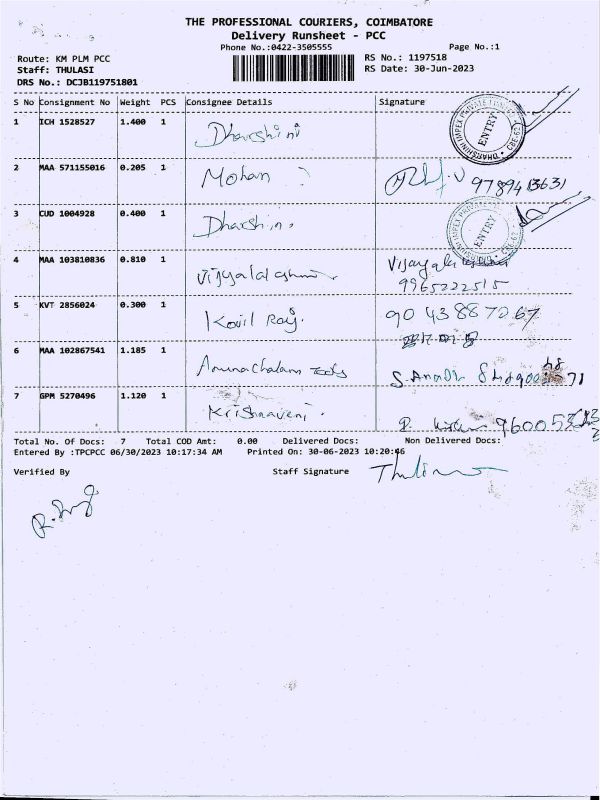 THE PROFESSIONAL COURIERS, COIMBATORE
Delivery Runsheet - PCC
Phone No.:0422-3505555 Page No.:1
Route: KM PLM PCC RS No.: 1197518
Staff: THULASI RS Date: 30-Jun-2023
DRS No.: DCJB119751801
S No Consignment No Weight PCS Consignee Details Signature
1 ICH 1528527 1.400 1 Dharshini
DHARSHINI IMPEX PRIVATE LIMITED ENTRY CBE-62
2 MAA 571155016 0.205 1 Mohan 9789413631
3 CUD 1004928 0.400 1 Dharshini
DHARSHINI IMPEX PRIVATE ENTRY CBE-62
4 MAA 103810836 0.810 1 Vijayalakshmi
9965222515
5 KVT 2856024 0.300 1 Kovil Raj. 90 43 88 7267
6 MAA 102867541 1.185 1 Arunachalam S. Anandh
7 GPM 5270496 1.120 1 Krishnaveni.
Total No. Of Docs: 7 Total COD Amt: 0.00 Delivered Docs: Non Delivered Docs:
Entered By :TPCPCC 06/30/2023 10:17:34 AM Printed On: 30-06-2023 10:20:46
Verified By Staff Signature